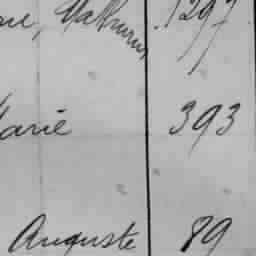 Mathurin 1297
Marie 393
Auguste 89